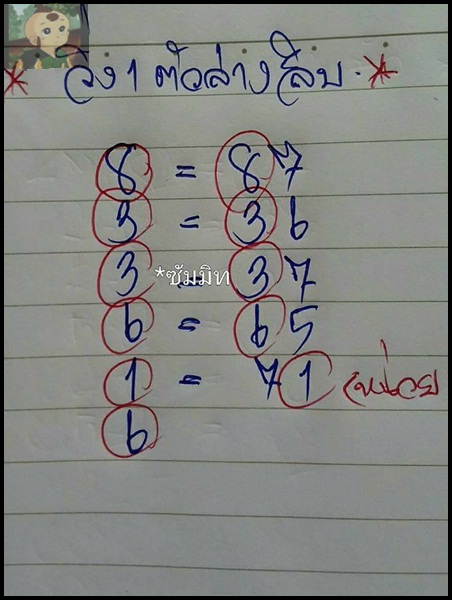 * วิ่ง 1 ตัวล่าง สิบ. *
8 = 87
3 = 36
3 = 37
*ซัมมิท
6 = 65
1 = 71 (หน่วย
6